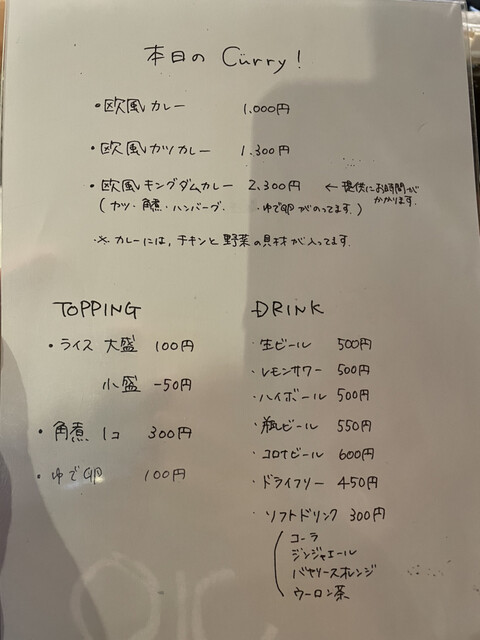 本日の Curry!
・欧風カレー 1,000円
・欧風カツカレー 1,300円
・欧風キングダムカレー 2,300円 ← 提供にお時間が
かかります。
(カツ・角煮・ハンバーグ ・ゆで卵がのってます。)
・※ カレーには、チキンと野菜の具材が入ってます。
TOPPING
・ライス 大盛 100円
小盛 -50円
・角煮 1コ 300円
・ゆで卵 100円
DRINK
・生ビール 500円
・レモンサワー 500円
・ハイボール 500円
・瓶ビール 550円
・コロナビール 600円
・ドライフリー 450円
・ソフトドリンク 300円
コーラ
ジンジャエール
バヤリースオレンジ
ウーロン茶